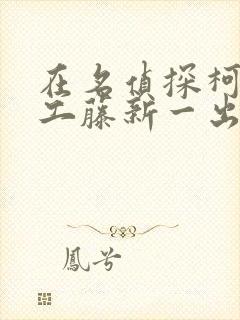 在名偵探柯
工藤新一出
鳳兮